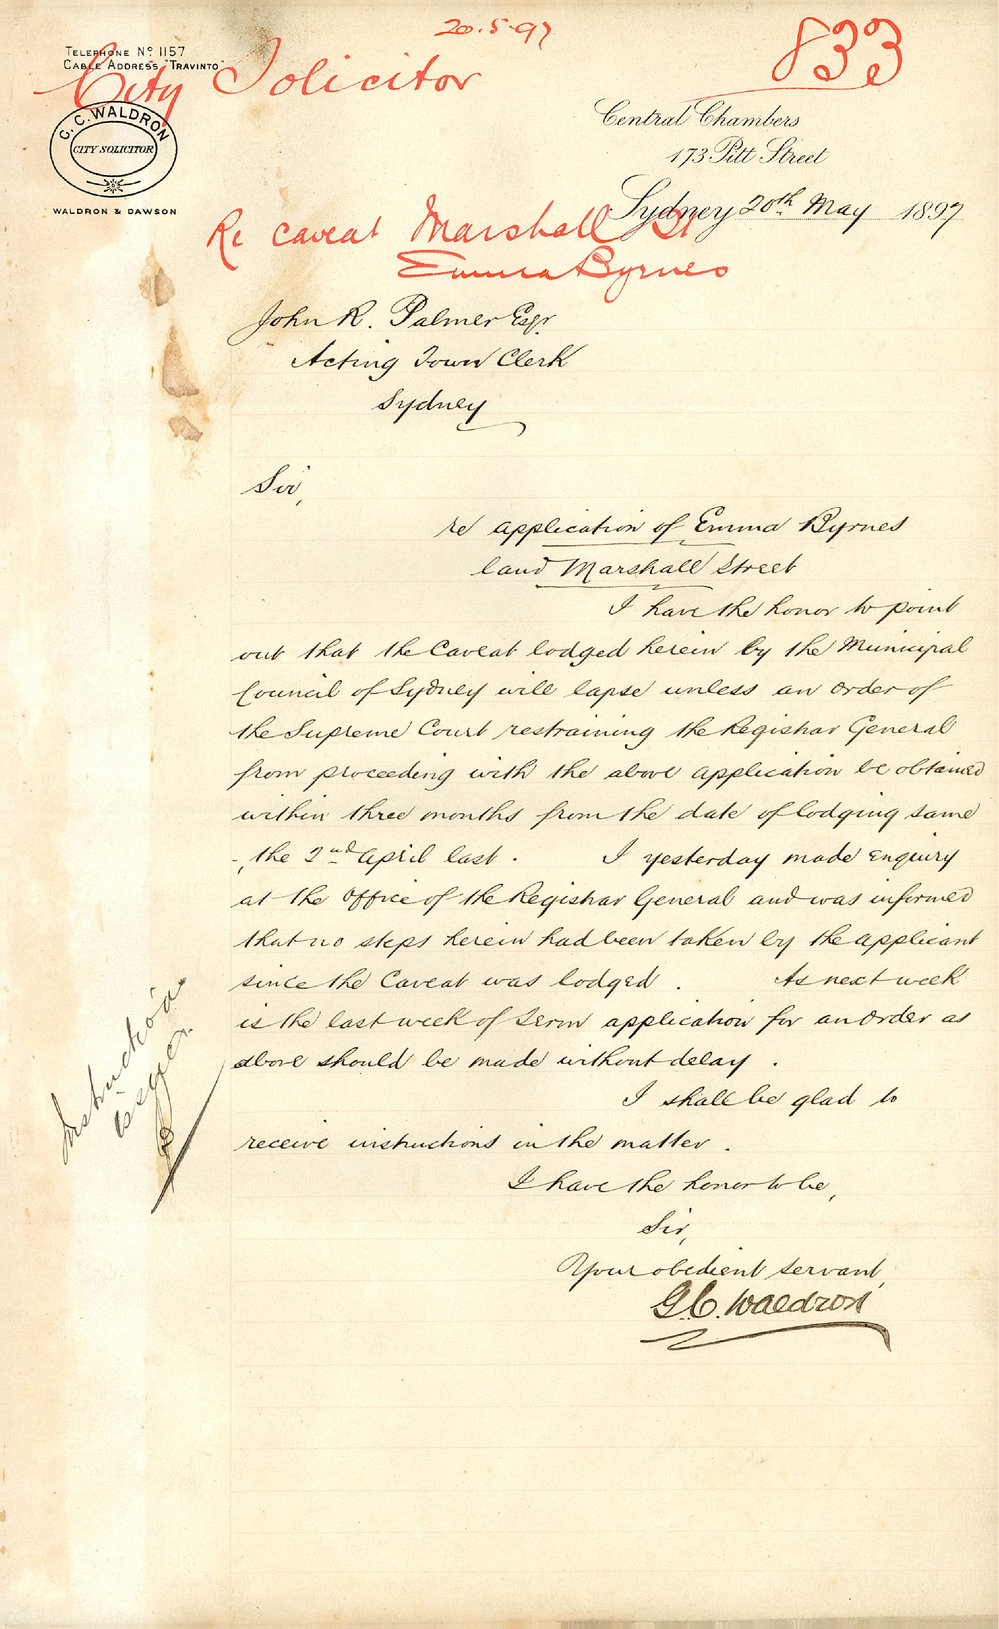 20.5.97
833
TELEPHONE Nº 1157
CABLE ADDRESS "TRAVINTO"
City Solicitor
G. C. WALDRON
CITY SOLICITOR
WALDRON & DAWSON
Central Chambers
173 Pitt Street
Sydney 20th May 1897
Re caveat Marshall St
Emma Byrnes
John R. Palmer Esqr.
Acting Town Clerk
Sydney
Sir,
re application of Emma Byrnes
land Marshall Street
I have the honor to point
out that the Caveat lodged herein by the Municipal
Council of Sydney will lapse unless an order of
the Supreme Court restraining the Registrar General
from proceeding with the above application be obtained
within three months from the date of lodging same
-, the 2nd April last. I yesterday made enquiry
at the Office of the Registrar General and was informed
that no steps herein had been taken by the applicant
since the Caveat was lodged. As next week
is the last week of Term application for an order as
above should be made without delay.
I shall be glad to
receive instructions in the matter.
I have the honor to be,
Sir,
Your obedient servant,
G. C. Waldron
Instructions